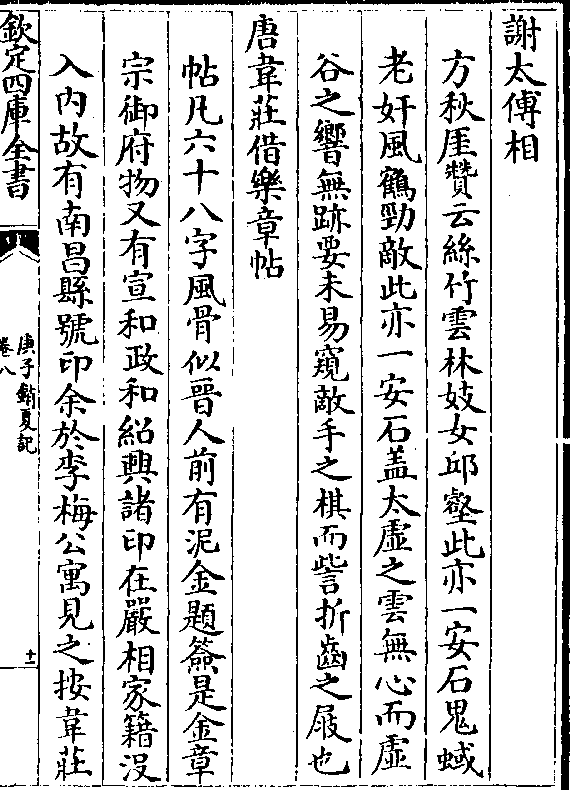 謝太傅相
方秋厓贊云絲竹雲林妓女邱壑此亦一安石鬼蜮
老奸風鶴勁敵此亦一安石盖太虛之雲無心而虛
谷之響無跡要未易窺敵手之棋而訾折齒之屐也
唐韋莊借樂章帖
帖凡六十八字風骨似晉人前有泥金題簽是金章
宗御府物又有宣和政和紹興諸印在嚴相家籍沒
入內故有南昌縣號印余於李梅公寓見之按韋莊
欽定四庫全書
庚子銷夏記
卷八
十一